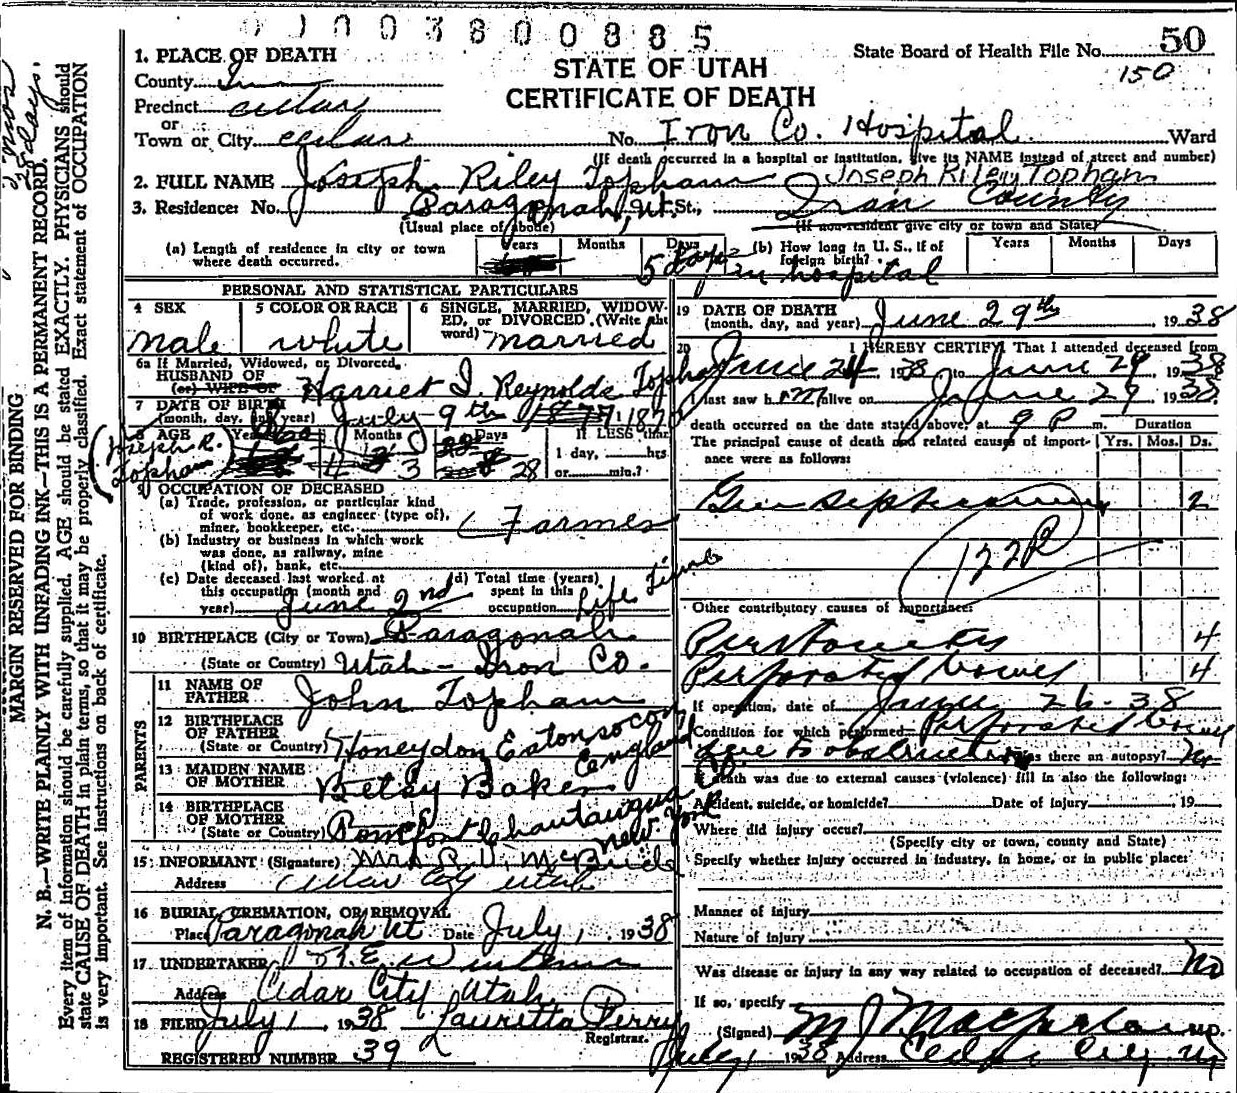 0 1 0 0 3 8 0 0 8 8 5
State Board of Health File No. 50
150
STATE OF UTAH
CERTIFICATE OF DEATH
1. PLACE OF DEATH
County Iron
Precinct Cedar
or
Town or City Cedar No. Iron Co. Hospital Ward
(If death occurred in a hospital or institution, give its NAME instead of street and number)
2. FULL NAME Joseph Riley Topham Joseph Riley Topham
3. Residence: No. Paragonah, Ut. St., Iron County
(Usual place of abode) (If non-resident give city or town and State)
(a) Length of residence in city or town where death occurred. Years Months Days 5 days in hospital
(b) How long in U. S., if of foreign birth? Years Months Days
PERSONAL AND STATISTICAL PARTICULARS
4 SEX male
5 COLOR OR RACE white
6 SINGLE, MARRIED, WIDOWED, or DIVORCED. (Write the word) married
6a If Married, Widowed, or Divorced,
HUSBAND OF (or) WIFE OF Harriet I Reynolds Topham
7 DATE OF BIRTH (month, day, and year) July 9th 1877
(Joseph R. Topham)
8 AGE Years Months Days 28 If LESS than 1 day, hrs. or min.?
9 OCCUPATION OF DECEASED
(a) Trade, profession, or particular kind of work done, as engineer (type of), miner, bookkeeper, etc. Farmer
(b) Industry or business in which work was done, as railway, mine (kind of), bank, etc.
(c) Date deceased last worked at this occupation (month and year) June 2nd
(d) Total time (years) spent in this occupation Life Time
10 BIRTHPLACE (City or Town) Paragonah
(State or Country) Utah - Iron Co.
PARENTS
11 NAME OF FATHER John Topham
12 BIRTHPLACE OF FATHER (State or Country) Honeydon Eatonsocon England
13 MAIDEN NAME OF MOTHER Betsy Baker
14 BIRTHPLACE OF MOTHER (State or Country) Pomfont Chautauqua Co New York
15 INFORMANT (Signature) Mrs. R. D. McBride
Address Cedar City Utah
16 BURIAL, CREMATION, OR REMOVAL
Place Paragonah Ut Date July 1, 1938
17 UNDERTAKER
Address Cedar City Utah
18 FILED July 1, 1938 Lauretta Perry
Registrar.
REGISTERED NUMBER 39
19 DATE OF DEATH (month, day, and year) June 29th 1938
20 I HEREBY CERTIFY That I attended deceased from
June 24, 1938 to June 29 1938
I last saw him alive on June 29 1938
death occurred on the date stated above, at 9 P m.
The principal cause of death and related causes of importance were as follows:
Duration Yrs. Mos. Ds.
Gen septicemia 2
122B
Other contributory causes of importance:
Peritonitis 4
Perforated bowel 4
If operation, date of June 26-38
Condition for which performed Perforated bowel
due to obstruction Was there an autopsy? No
If death was due to external causes (violence) fill in also the following:
Accident, suicide, or homicide? Date of injury 19
Where did injury occur?
(Specify city or town, county and State)
Specify whether injury occurred in industry, in home, or in public place:
Manner of injury
Nature of injury
Was disease or injury in any way related to occupation of deceased? No
If so, specify
(Signed) M J Macfarlane M.D.
July 1 1938 Address Cedar City, Ut
MARGIN RESERVED FOR BINDING
N. B.—WRITE PLAINLY WITH UNFADING INK—THIS IS A PERMANENT RECORD.
Every item of information should be carefully supplied. AGE should be stated EXACTLY. PHYSICIANS should
state CAUSE OF DEATH in plain terms, so that it may be properly classified. Exact statement of OCCUPATION
is very important. See instructions on back of certificate.